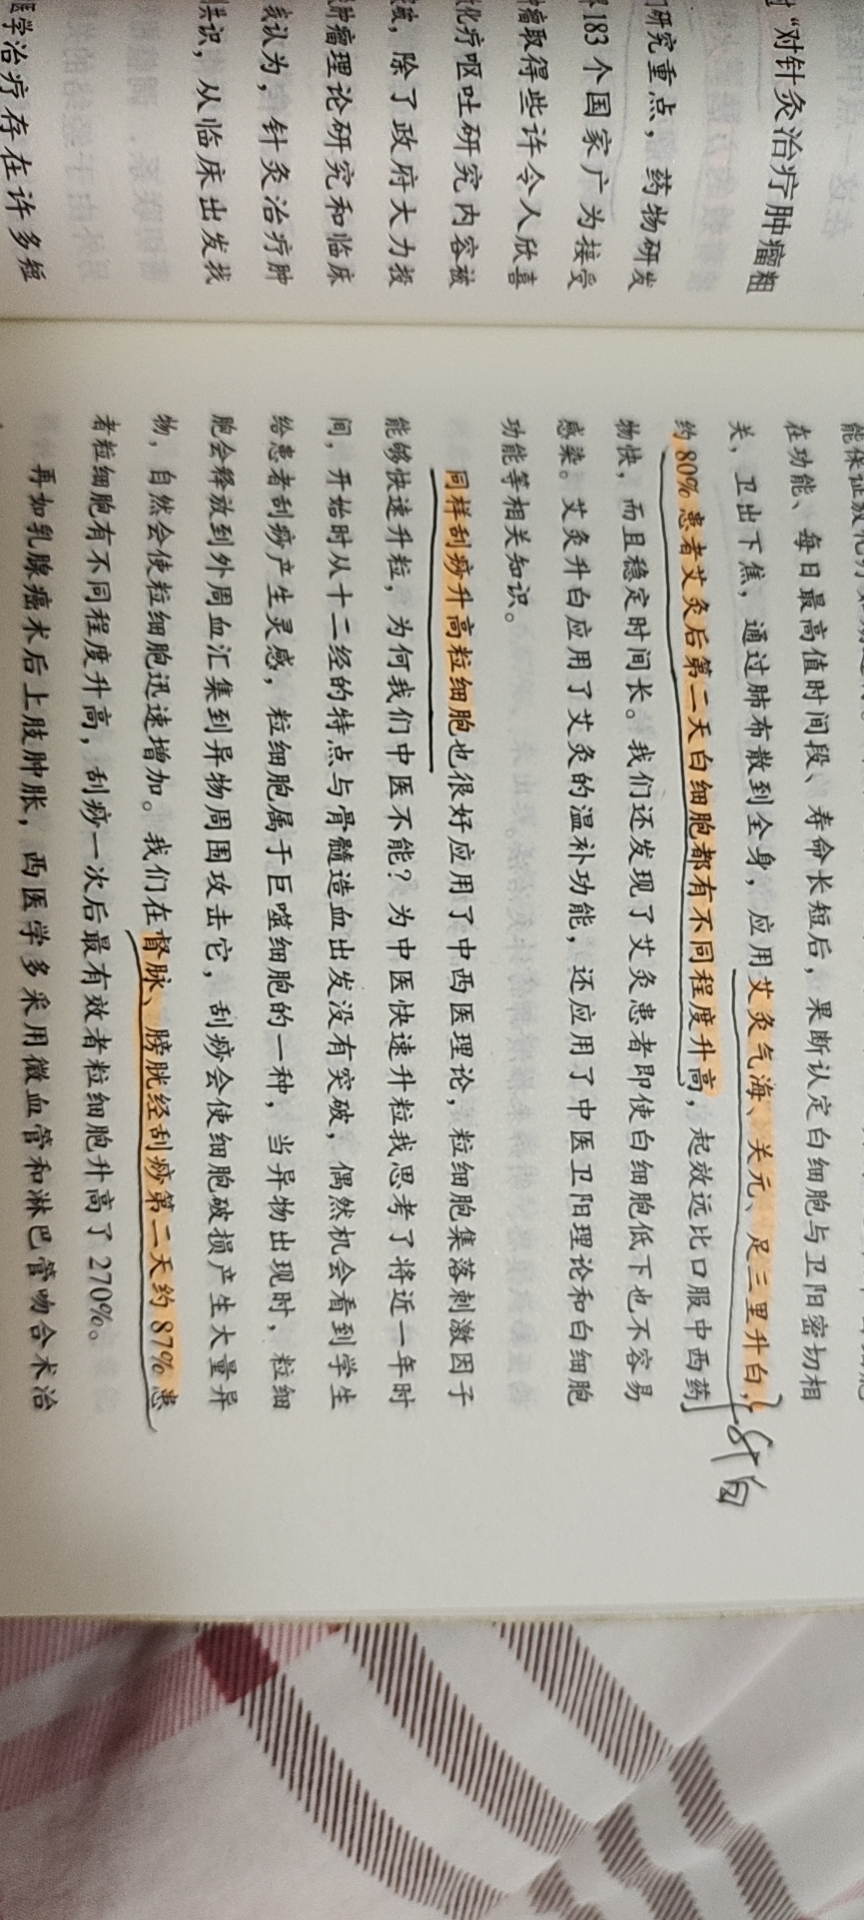 时“对针灸治疗肿瘤粗
研究重点，药物研发
183个国家广为接受
瘤取得些许令人欣喜
化疗呕吐研究内容被
，除了政府大力投
肿瘤理论研究和临床
认为，针灸治疗肿
共识，从临床出发找
医学治疗存在许多短
能保证放化疗
在功能、每日最高值时间段、寿命长短后，果断认定白细胞与卫阳密切相
关，卫出下焦，通过肺布散到全身，应用艾灸气海、关元、足三里升白，
升白
约80%患者艾灸后第二天白细胞都有不同程度升高，起效远比口服中西药
物快，而且稳定时间长。我们还发现了艾灸患者即使白细胞低下也不容易
感染。艾灸升白应用了艾灸的温补功能，还应用了中医卫阳理论和白细胞
功能等相关知识。
同样刮痧升高粒细胞也很好应用了中西医理论，粒细胞集落刺激因子
能够快速升粒，为何我们中医不能？为中医快速升粒我思考了将近一年时
间，开始时从十二经的特点与骨髓造血出发没有突破，偶然机会看到学生
给患者刮痧产生灵感，粒细胞属于巨噬细胞的一种，当异物出现时，粒细
胞会释放到外周血汇集到异物周围攻击它，刮痧会使细胞破损产生大量异
物，自然会使粒细胞迅速增加。我们在督脉、膀胱经刮痧第二天约87%患
者粒细胞有不同程度升高，刮痧一次后最有效者粒细胞升高了270%。
再如乳腺癌术后上肢肿胀，西医学多采用微血管和淋巴管吻合术治